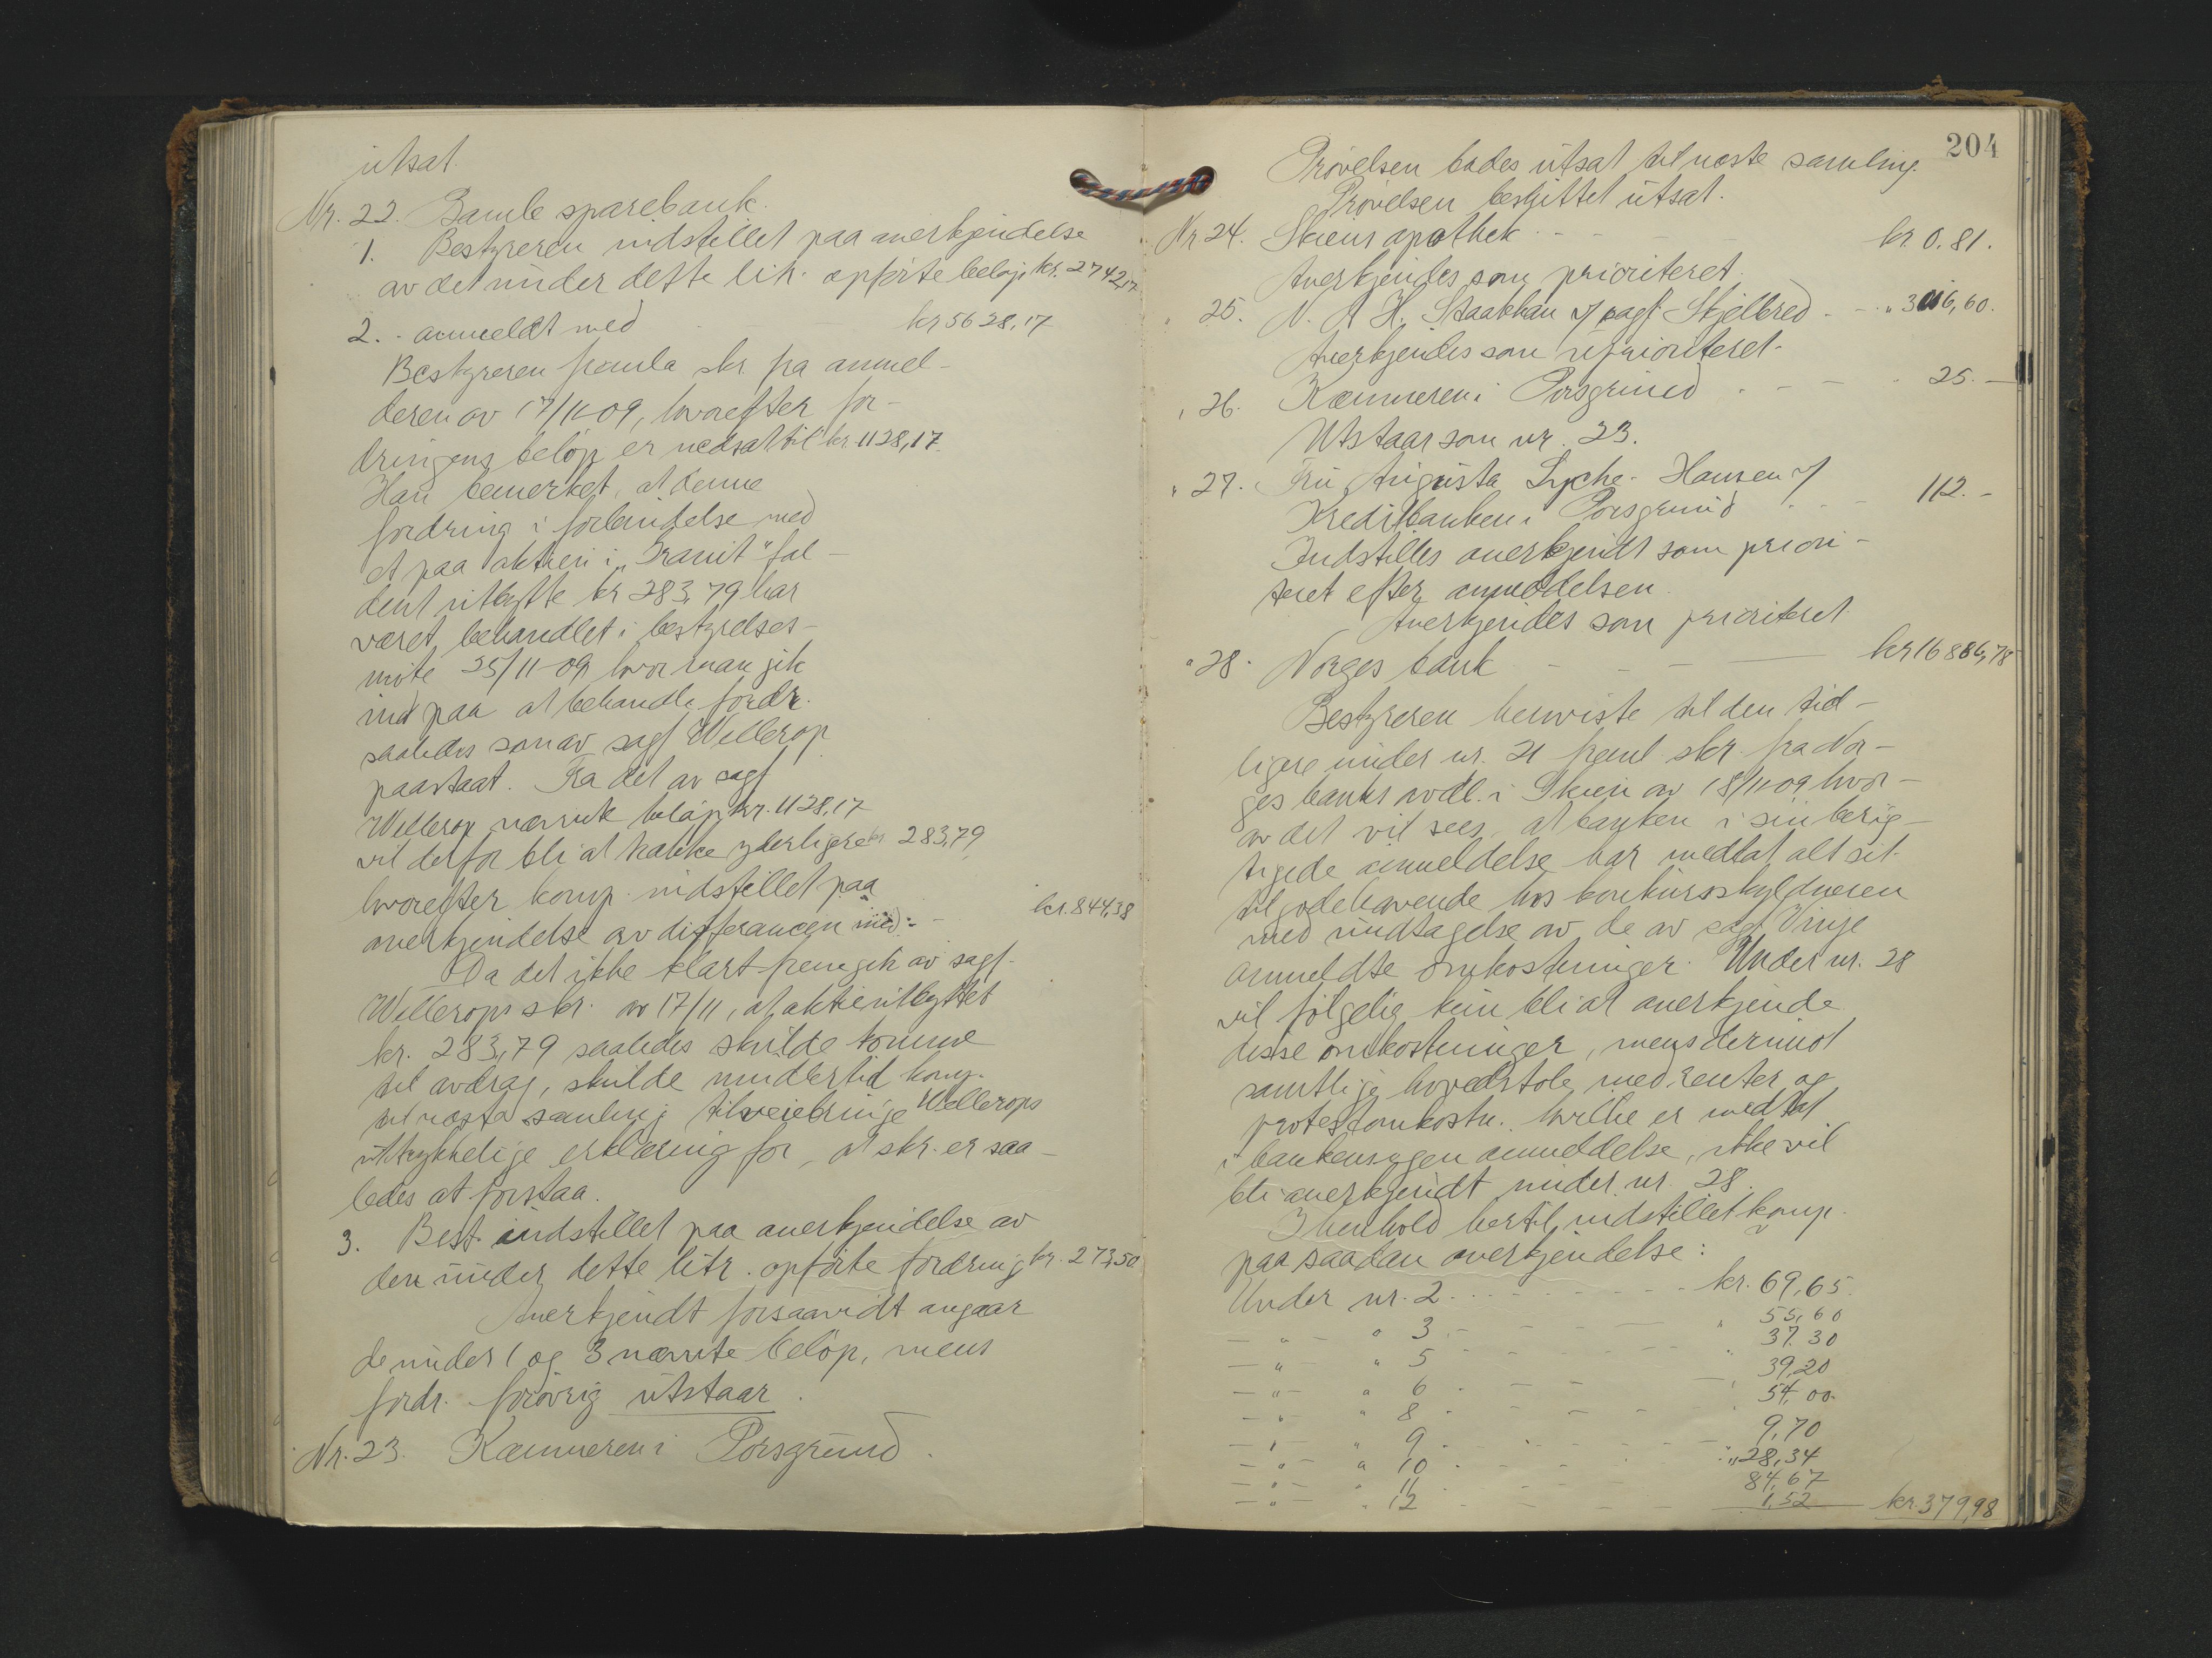 utsat.
Nr. 22. Bamle sparebank.
1. Bestyreren indstillet paa anerkjendelse
av det under dette litr. opførte beløp kr. 2742,17
2. - anmeldt med kr 5628,17
Bestyreren fremla skr. fra anmel-
deren av 17/11-09, hvorefter for-
dringens beløp er nedsat til kr. 1128,17.
Han bemerket, at denne
fordring i forbindelse med
et paa aktien i "Granit" fal-
dent utbytte kr 283,79 har
været behandlet i bestyrelses-
møte 25/11-09 hvor man gik
ind paa at behandle fordr.
saaledes som av sagf Wellerop
paastaat. Fra det av sagf
Wellerop nævnte beløp kr. 1128,17
vil derfor bli at trække yderligere kr 283,79
hvorefter komp. indstillet paa
anerkjendelse av differancen med: - kr. 844,38
Da det ikke klart fremgik av sagf.
Wellerops skr. av 17/11, at aktieutbyttet
kr. 283,79 saaledes skulde komme
til avdrag, skulde imidlertid komp.
til næste samling tilveiebringe Wellerops
uttrykkelige erklæring for, at skr. er saa-
ledes at forstaa.
3. Best. indstillet paa anerkjendelse av
den under dette litr. opførte fordring kr. 273,50
Anerkjendt forsaavidt angaar
de under 1 og 3 nævnte beløp, mens
fordr. forøvrig utstaar.
Nr. 23. Kæmneren i Porsgrund.
204
Prøvelsen bades utsat til næste samling.
Prøvelsen besluttet utsat.
Nr 24. Skiens apothek - - - kr. 0.81.
Anerkjendes som prioriteret.
" 25. N. A H. Staakkan v/ sagf. Skjelbred - - " 306,60.
Anerkjendes som uprioriteret.
" 26. Kæmneren i Porsgrund - - - " 25.—
Utstaar som nr. 23.
" 27. Fru Augusta Lyche-Hansen v/
Kreditbanken i Porsgrund - - 112.-
Indstilles anerkjendt som priori-
teret efter anmeldelsen.
Anerkjendes som prioriteret.
" 28. Norges bank - - - kr 16886,78
Bestyreren henviste til den tid-
ligere under nr. 21 freml skr. fra Nor-
ges banks avdl. i Skien av 18/11-09 hvor-
av det vil sees, at banken i sin berig-
tigede anmeldelse har medtat alt sit
tilgodehavende hos konkursskyldneren
med undtagelse av de av sagf Vinje
anmeldte omkostninger. Under nr. 28
vil følgelig kun bli at anerkjende
disse omkostninger, mens derimot
samtlige hovedstole med renter og
protestomkostn. hvilke er medtat
i bankens egen anmeldelse, ikke vil
bli anerkjendt under nr. 28.
I henhold hertil indstillet komp.
paa saadan anerkjendelse:
Under nr. 2 - - - kr. 69,65
- " - " 3 - - - " 55,60
- " - " 5 - - - " 37.30
- " - " 6 - - - " 39,20
- " - " 8 - - - " 54,00
- " - " 9 - - - 9,70
- " - " 10 - - - " 28,34
- " - " 11 - - - 84,67
- " - " 12 - - - 1,52 kr. 379,98